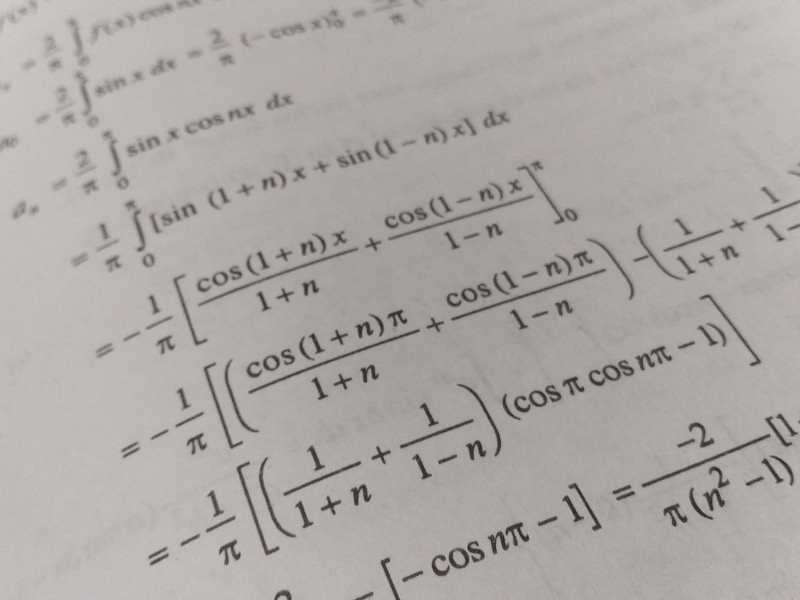 = 2/π ∫₀^π f(x) cos n
= 2/π ∫₀^π sin x dx = 2/π (− cos x)₀^π =
aₙ = 2/π ∫₀^π sin x cos nx dx
= 1/π ∫₀^π [sin (1 + n) x + sin (1 − n) x] dx
= − 1/π [cos (1 + n) x / 1 + n + cos (1 − n) x / 1 − n]₀^π
= − 1/π [(cos (1 + n) π / 1 + n + cos (1 − n) π / 1 − n) − (1 / 1 + n + 1 / 1 −
= − 1/π [(1 / 1 + n + 1 / 1 − n) (cos π cos nπ − 1)]
[− cos nπ − 1] = −2 / π (n² − 1) [1